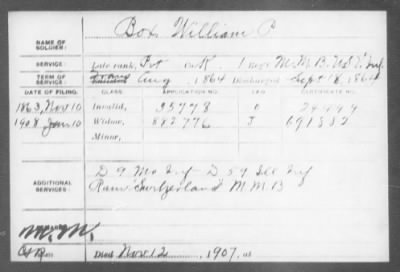 NAME OF SOLDIER: Box William P
SERVICE: Late rank, Pvt Co. K. 1 Regt M.M.B. U.S.V. Inf
TERM OF SERVICE: Enlisted Aug 1864 Discharged Sept 18, 1864
DATE OF FILING. CLASS. APPLICATION NO. CERTIFICATE NO.
1863, Nov 10 Invalid, 35778 24444
1908 Jan 10 Widow, 882776 J 691352
Minor,
ADDITIONAL SERVICES: D 9 Mo Inf D 59 Ill Inf
Ram "Switzerland" M M B
M.M.
Died Nov. 12, 1907, at